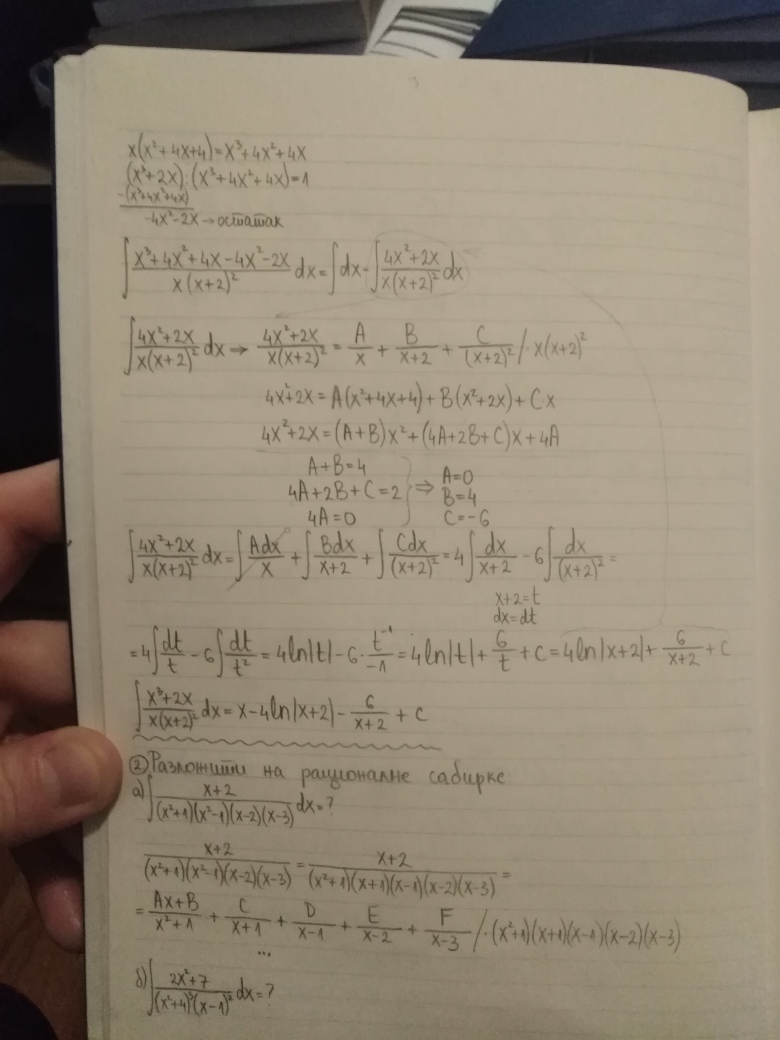 3
x(x²+4x+4)=x³+4x²+4x
(x³+2x):(x³+4x²+4x)=1
-(x³+4x²+4x)
-4x²-2x → остатак
∫ (x³+4x²+4x-4x²-2x)/(x(x+2)²) dx = ∫dx - ∫ (4x²+2x)/(x(x+2)²) dx
∫ (4x²+2x)/(x(x+2)²) dx → (4x²+2x)/(x(x+2)²) = A/x + B/(x+2) + C/(x+2)² /· x(x+2)²
4x²+2x = A(x²+4x+4) + B(x²+2x) + Cx
4x²+2x = (A+B)x² + (4A+2B+C)x + 4A
A+B=4
4A+2B+C=2 } ⇒
4A=0
A=0
B=4
C=-6
∫ (4x²+2x)/(x(x+2)²) dx = ∫ Adx/x + ∫ Bdx/(x+2) + ∫ Cdx/(x+2)² = 4∫ dx/(x+2) - 6∫ dx/(x+2)² =
x+2=t
dx=dt
= 4∫ dt/t - 6∫ dt/t² = 4ln|t| - 6· t⁻¹/-1 = 4ln|t| + 6/t + C = 4ln|x+2| + 6/(x+2) + C
∫ (x³+2x)/(x(x+2)²) dx = x - 4ln|x+2| - 6/(x+2) + C
② Разложити на рационалне сабирке:
а) ∫ (x+2)/((x²+1)(x²-1)(x-2)(x-3)) dx = ?
(x+2)/((x²+1)(x²-1)(x-2)(x-3)) = (x+2)/((x²+1)(x+1)(x-1)(x-2)(x-3)) =
= (Ax+B)/(x²+1) + C/(x+1) + D/(x-1) + E/(x-2) + F/(x-3) /· (x²+1)(x+1)(x-1)(x-2)(x-3)
...
б) ∫ (2x²+7)/((x²+4)³(x-1)²) dx = ?